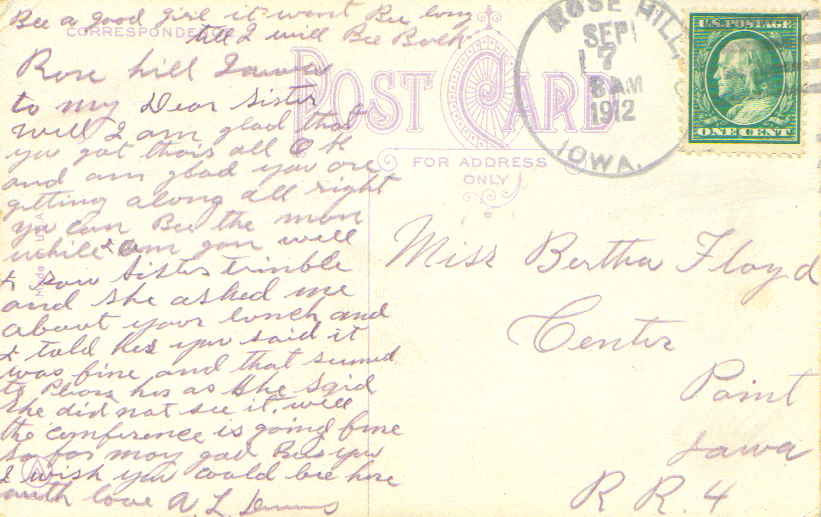 Bee a good girl it wont Bee long
till I will Bee Back
CORRESPONDENCE
Rose hill Iowa
to my Dear Sister
well I am glad that
you got thair all O K
and am glad you are
getting along all right
you can Bee the man
while I am gon well
I saw Sister trinble
and she asked me
about your lunch and
I told her you said it
was fine and that seumed
to Pleas her as she said
she did not see it. well
the conference is going fine
so far may god Bless you
I wish you could bee here
with love A L
POST CARD
FOR ADDRESS
ONLY
ROSE HILL,
SEP
7
8 AM
1912
IOWA.
U.S. POSTAGE
ONE CENT
Miss Bertha Floyd
Center
Point
Iowa
R R. 4